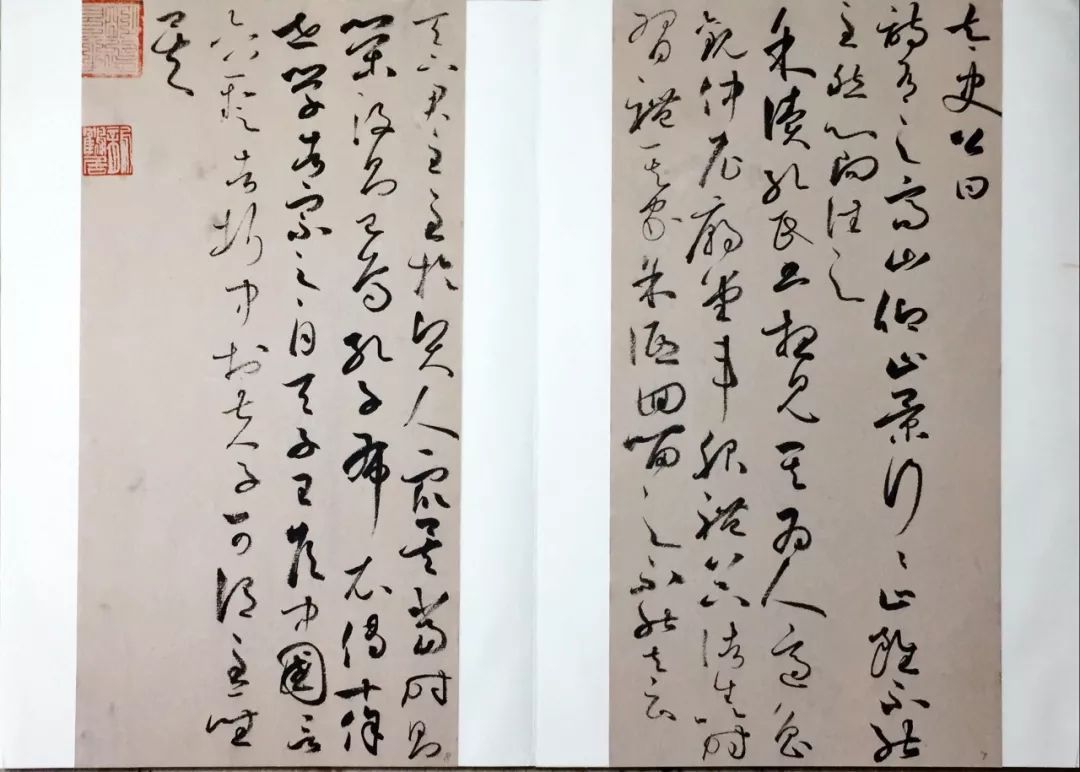 太史公曰
詩有之高山仰止景行行止雖不能
至然心向往之
余讀孔氏書想見其為人適魯
觀仲尼廟堂車服禮器諸生以時
習禮其家余低回留之不能去云
天下君王至於賢人眾矣當時則
榮沒則已焉孔子布衣傳十餘
世學者宗之自天子王侯中國言
六藝者折中於夫子可謂至聖
矣